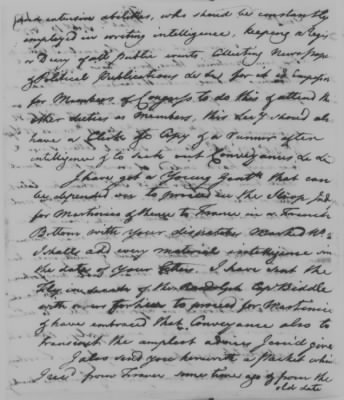 and extensive abilities, who should be constantly
employed in writing intelligence, keeping a Regis
or Diary of all Public events Collecting News pape
& Political Publications &c &c for it is impossi
for Members of Congress to do this & attend the
other duties as Members, this Secy should als
have a Clerk to Copy & a runner after
intelligence & to seek out Conveyances &c &c
I have got a Young Gentn that can
be depended on to proceed in the Sloop
for Martinico & thence to France in a French
Bottom with your dispatches Marked No 2
I shall add every material intelligence in
the date of Your letters. I have sent the
Fly down the Randolph Capt Biddle
with orders for her to proceed for Martinico
& have embraced that Conveyance also to
transmit the amplest advices I coud give
I also send you herewith a Packet whic
I recd from France some time ago & from the
old date